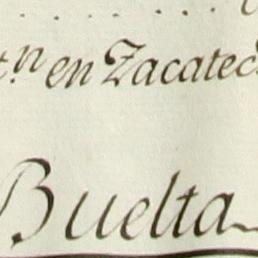 t.n en Zacatec
Buelta